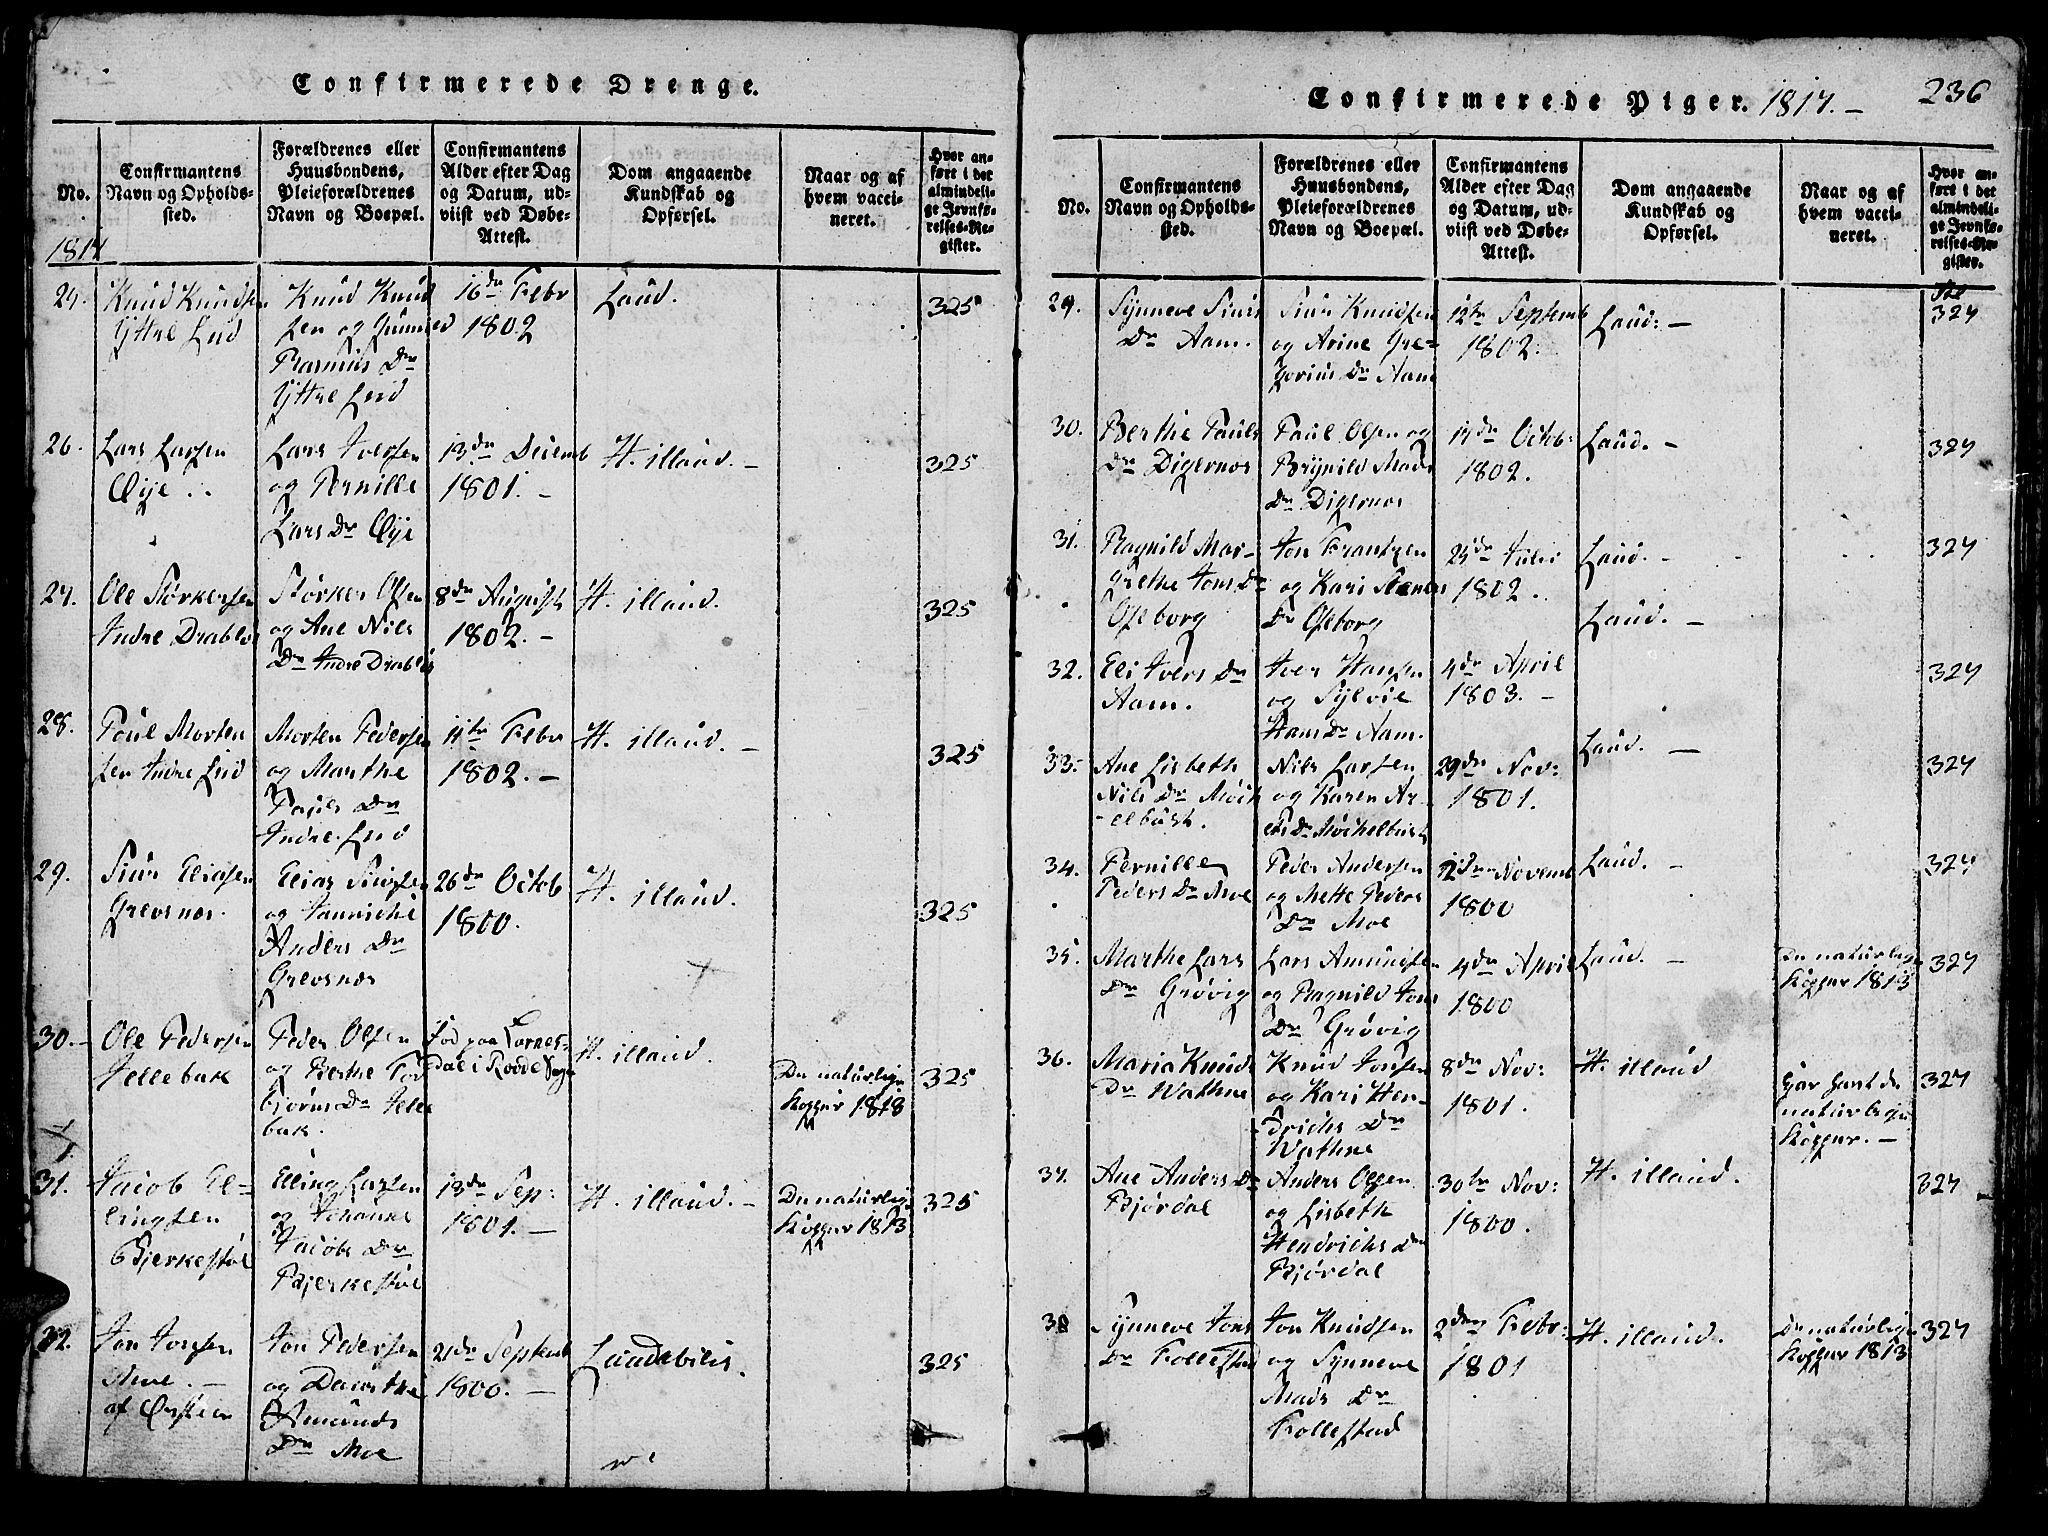 Confirmerede Drenge.
No.
Confirmantens
Navn og Opholds-
sted.
Forældrenes eller
Huusbondens,
Pleieforældrenes
Navn og Boepæl.
Confirmantens
Alder efter Dag
og Datum, ud-
viist ved Døbe-
Attest.
Dom angaaende
Kundskab og
Opførsel.
Naar og af
hvem vacci-
neret.
Hvor an-
ført i det
almindeli-
ge Jevnfø-
relses-Re-
gister.
1817
25.
Knud Knudsen
Yttre Lid
Knud Knud
sen og Gunnild
Rasmus Dr
Yttre Lid
16de Febr
1802
Laud.
325
26.
Lars Larsen
Øye
Lars Iversen
og Pernille
Lars Dr Øye
13de Decemb
1801. -
H. illaud. -
325
27.
Ole Størkersen
Indre Drabløs
Størker Olsen
og Ane Nils
Dr Indre Drabløs
8de August
1802. -
H. illaud.
325
28.
Poul Morten
sen Indre Lid
Morten Pedersen
og Marthe
Pouls Dr
Indre Lid
11te Febr
1802. -
H. illaud. -
325
29.
Siur Eliasen
Grevsnæs.
Elias Siursen
og Jannicke
Anders Dr
Grevsnæs
26de Octob
1800.
H. illaud.
325
30. -
Ole Pedersen
Jellebak
Peder Olsen
og Berthe Tor
biørns Dr Jelle
bak.
Fød paa Lornes-
dal i Rødde Sogn
H. illaud.
De naturlige
Kopper 1818
325
31.
Jacob El-
lingsen
Bjerkestøl
Elling Larsen
og Johanne
Jacobs Dr
Bjerkestøl
13de Sep:
1801. -
H. illaud. -
De naturlige
Kopper 1813
325
32.
Jon Jonsen
Moe. -
af Ørsteen
Jon Pedersen
og Dorthe
Amunds
Dr Moe
21de Septemb
1800. -
Laudabilis.
325
Confirmerede Piger. 1817. -
236
No.
Confirmantens
Navn og Opholds-
sted.
Forældrenes eller
Huusbondens,
Pleieforældrenes
Navn og Boepæl.
Confirmantens
Alder efter Dag
og Datum, ud-
viist ved Døbe-
Attest.
Dom angaaende
Kundskab og
Opførsel.
Naar og af
hvem vacci-
neret.
Hvor an-
ført i det
almindeli-
ge Jevnfø-
relses-Re-
gister.
29.
Synneve Siurs
Dr Aam.
Siur Knudsen
og Arine Gre-
gorius Dr Aam
12te Septemb
1802.
Laud: -
327
30.
Berthe Pauls
Dr Digernæs
Paul Olsen og
Brynild Mads
Dr Digernæs
17de Octob:
1802.
Laud. -
327
31.
Ragnild Mar-
grethe Jons Dr
Oseborg
Jon Frantzen
og Kari Steners
Dr Oseborg
25de Julii
1802.
Laud. -
327
32.
Eli Ivers Dr
Aam.
Iver Hansen
og Sylvie
Hans Dr Aam.
4de April
1803. -
Laud. -
327
33.
Ane Lisbeth
Nils Dr Møck
-elbust.
Nils Larsen
og Karen Ar-
ens Dr Møckelbust
29de Nov:
1801.
Laud. -
327
34.
Pernille
Peders Dr Moe
Peder Andersen
og Mette Peders
Dr Moe
12de Novemb
1800
Laud. -
327
35.
Marthe Lars
Dr Grøvig
Lars Amundsen
og Ragnild Jons
Dr Grøvig
4de April
1800
Laud. -
De naturlige
Kopper 1813
327
36.
Maria Knuds
Dr Wathne
Knud Jonsen
og Kari Hen-
drichs Dr
Wathne
8de Nov:
1801.
H. illaud
har havt de
naturlige
Kopper. -
327
37.
Ane Anders Dr
Bjørdal
Anders Olsen
og Lisbeth
Hendrichs Dr
Bjørdal
30te Nov:
1800.
H. illaud.
327
38
Synneve Jons
Dr Follestad
Jon Knudsen
og Synneve
Mads Dr
Follestad
2den Febr:
1801
H. illaud.
De naturlige
Kopper 1813
327